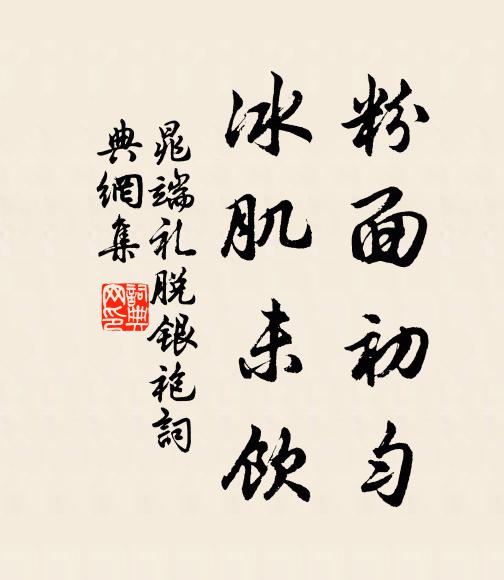 粉面初匀
冰肌未饮
晁端礼脱银袍詞
典網集
詞典网印